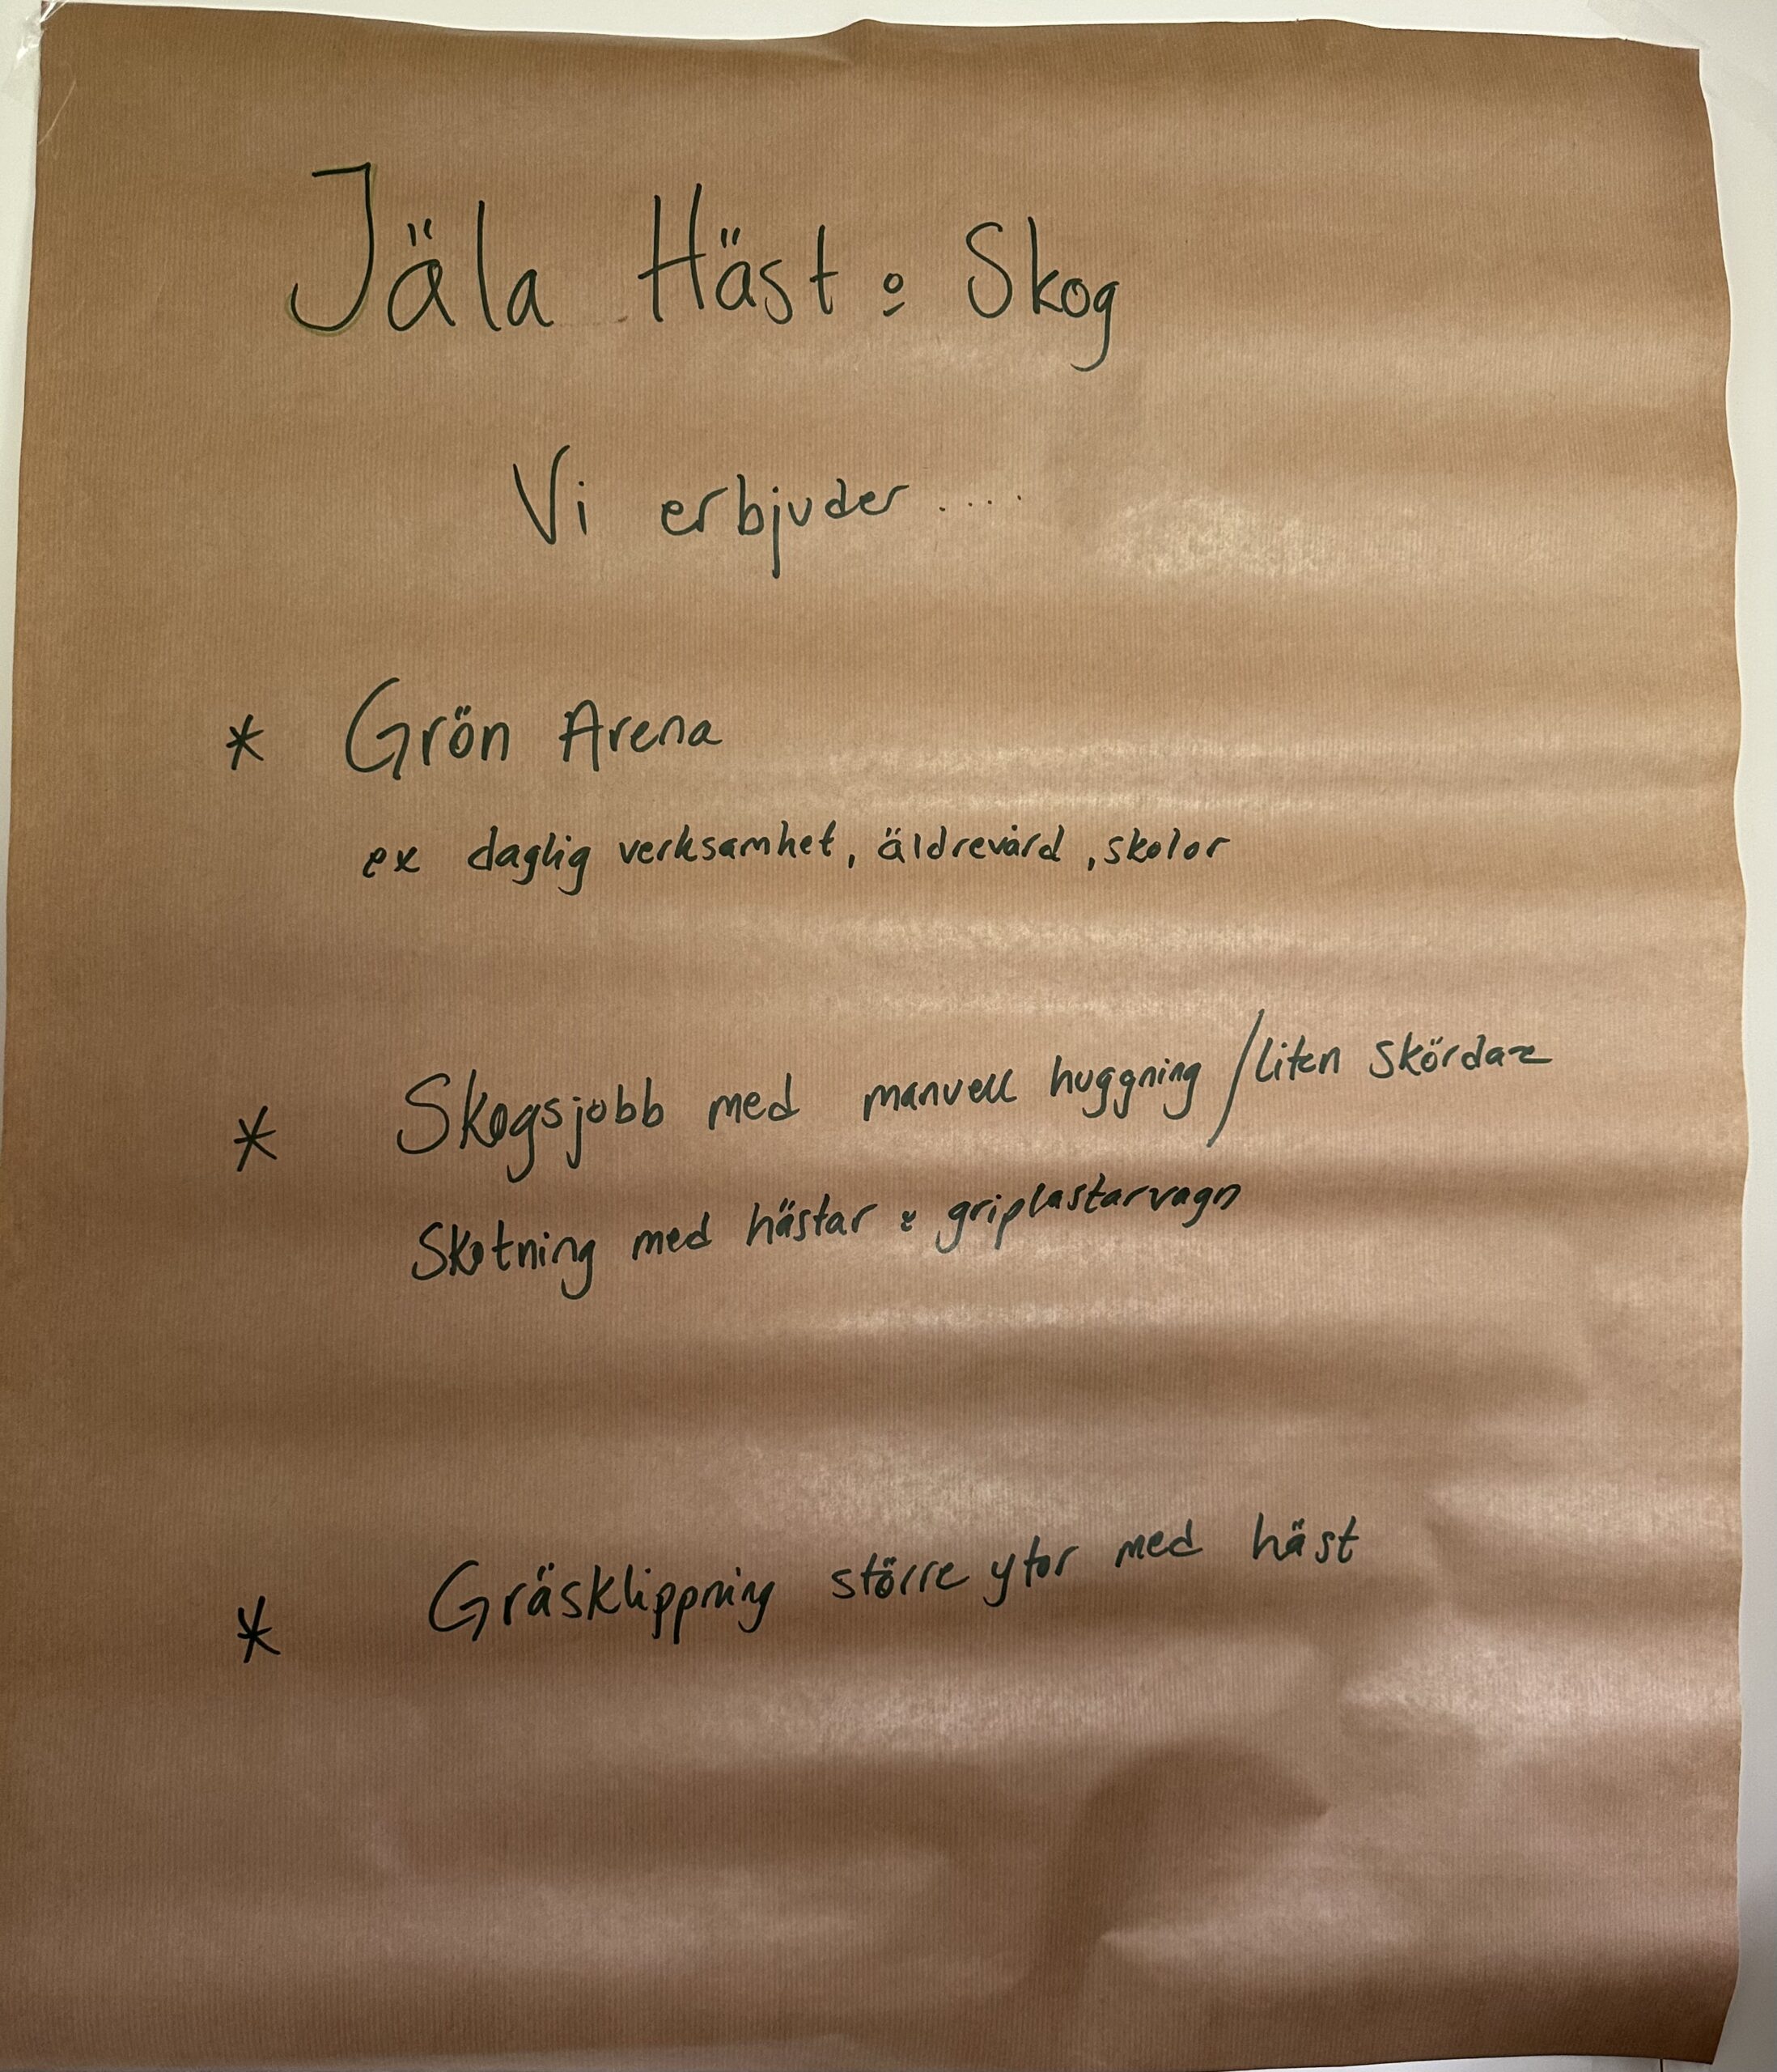 Jäla Häst o Skog
Vi erbjuder ....
* Grön Arena
ex daglig verksamhet, äldrevård, skolor
* Skogsjobb med manuell huggning / liten skördare
Skotning med hästar o griplastarvagn
* Gräsklippning större ytor med häst